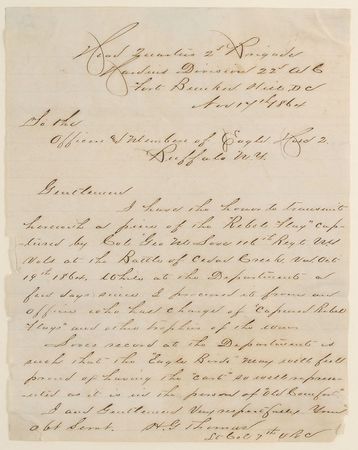 Head Quarters 2d Brigade
Hardins Division 22d A C
Fort Bunker Hill, DC
Nov 17th 1864
To the
Officers & Members of Eagle Hose 2.
Buffalo N.Y.
Gentlemen
I have the honor to transmit
herewith a piece of the "Rebel Flag" cap-
tured by Col Geo M Love 116th Regt NY
Vols at the Battle of Cedar Creek, Va Oct
19th 1864. While at the Department a
few days since I procured it from an
officer who has charge of "Captured Rebel
Flags" and other trophies of the war.
Loves record at the Department is
such that the "Eagle Birds" may well feel
proud of having the "cart" so well repre-
sented as it is in the person of "Old Comfort"
I am Gentlemen Very respectfully Your
obt Servt. H G Thomas
Lt Col 7th VRC